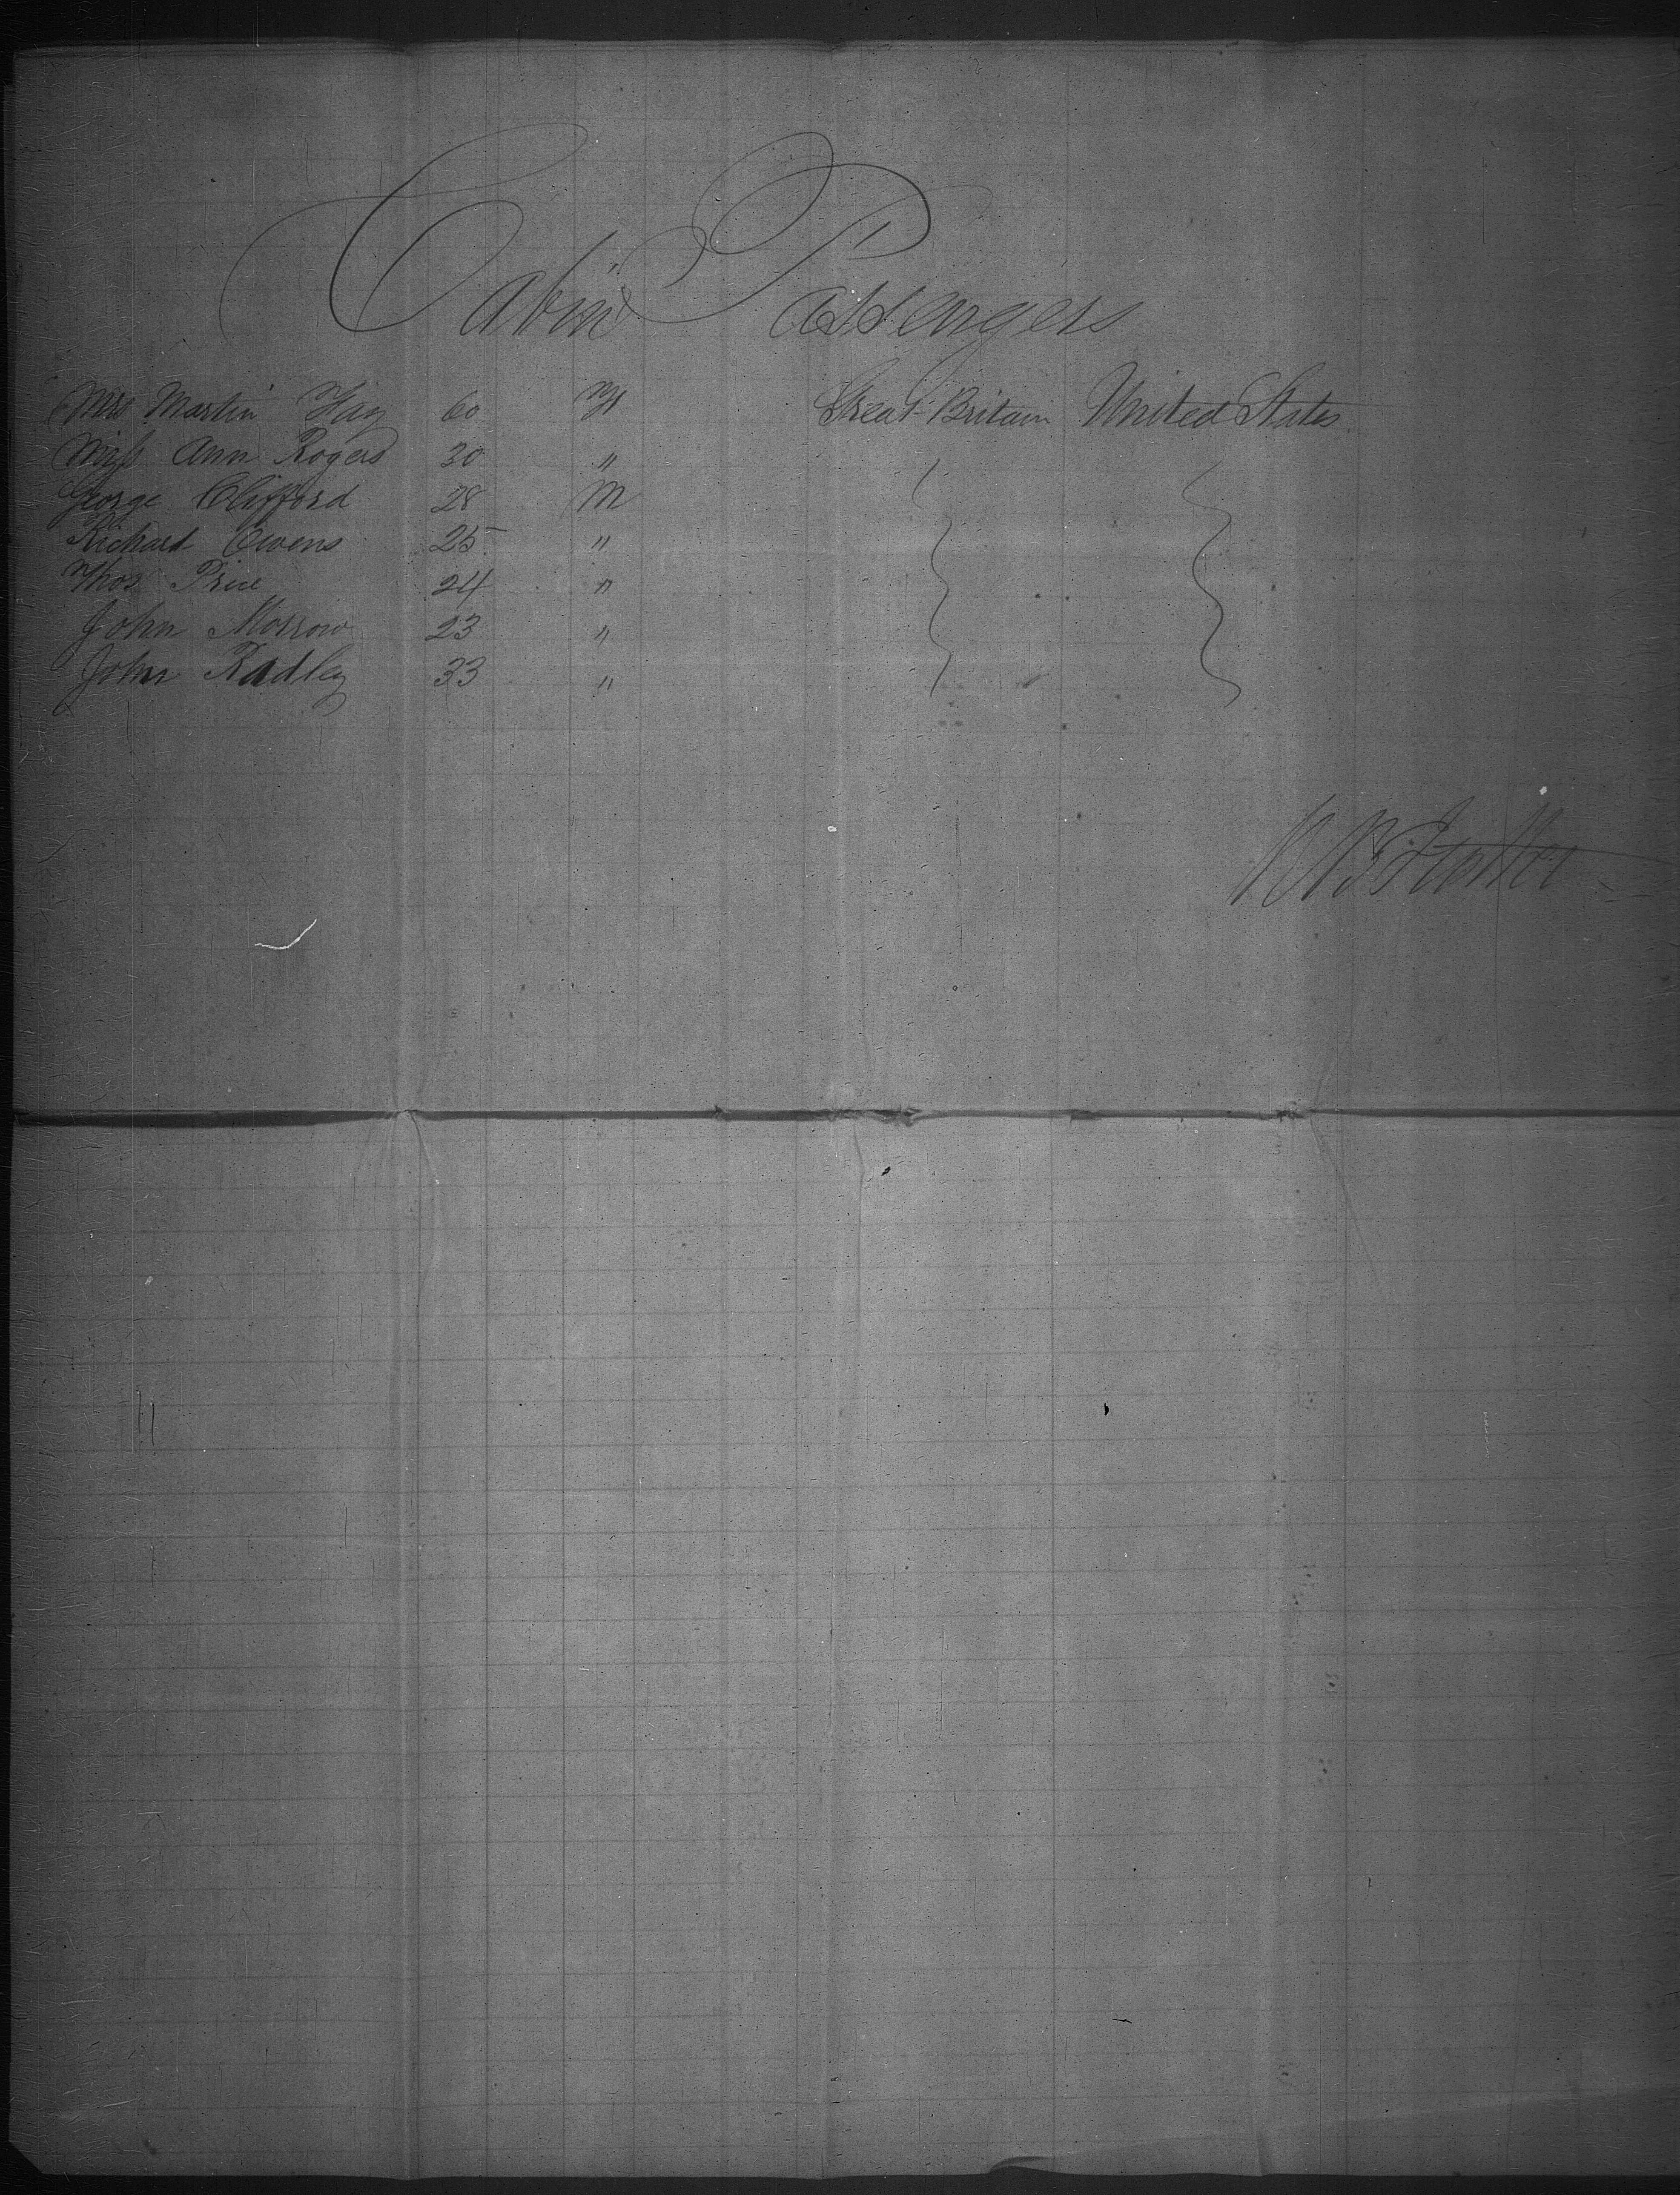 Cabin Passengers
Mrs Martin Hay 60 F Great Britain United States
Miss Ann Rogers 30 "
George Clifford 28 M
Richard Owens 25 "
Thos Price 24 "
John Morrow 23 "
John Radley 33 "